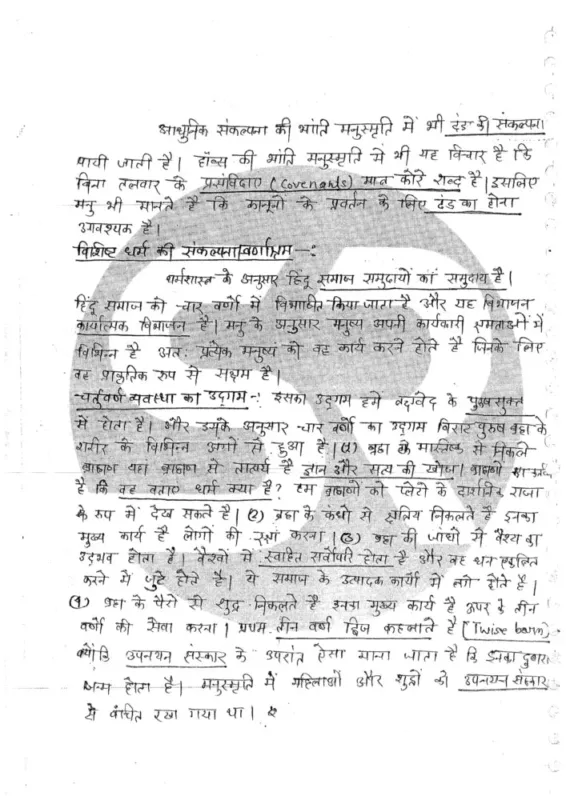 आधुनिक संकल्पना की भांति मनुस्मृति में भी दंड की संकल्पना
पायी जाती है। हॉब्स की भांति मनुस्मृति में भी यह विचार है कि
बिना तलवार के प्रसंविदाए (Covenants) मात्र कोरे शब्द है। इसलिए
मनु भी मानते है कि कानूनों के प्रवर्तन के लिए दंड का होना
आवश्यक है।
विशिष्ट धर्म की संकल्पना/वर्णाश्रम -:
धर्मशास्त्र के अनुसार हिंदू समाज समुदायों का समुदाय है।
हिंदू समाज को चार वर्णो में विभाजित किया जाता है और यह विभाजन
कार्यात्मक विभाजन है। मनु के अनुसार मनुष्य अपनी कार्यकारी क्षमताओं में
विभिन्न है अतः प्रत्येक मनुष्य को वह कार्य करने होते है जिनके लिए
वह प्राकृतिक रूप से सक्षम है।
चर्तुवर्ण व्यवस्था का उद्गम -: इसका उद्गम हमें के पुरुष सुक्त
में होता है। और उसके अनुसार चार वर्णो का उद्गम विराट पुरुष ब्रह्मा के
शरीर के विभिन्न अंगो से हुआ है। (1) ब्रह्मा के मास्तिष्क से निकले
ब्राह्मण यहा ब्राह्मण से तात्पर्य है ज्ञान और सत्य की खोज। ब्राह्मणो का
है कि वह बताए धर्म क्या है? हम ब्राह्मणों को प्लेटो के दार्शनिक राजा
के रूप में देख सकते है। (2) ब्रह्मा के कंधो से क्षत्रिय निकलते है इनका
मुख्य कार्य है लोगों की रक्षा करना। (3) ब्रह्मा की जांघो में वैश्य का
उद्भव होता है। वैश्यों में स्वाहित सर्वोपरि होता है और वह धन एकत्रित
करने में जुटे होते है। ये समाज के उत्पादक कार्यो में लगे होते है।
(4) ब्रह्मा के पैरो से शुद्र निकलते है इनका मुख्य कार्य है ऊपर के तीन
वर्णों की सेवा करना। प्रथम तीन वर्ण द्विज कहलाते है (Twise born)
क्योंकि उपनयन संस्कार के उपरांत ऐसा माना जाता है कि इनका दुबारा
जन्म होता है। मनुस्मृति में महिलाओं और शुद्रों को उपनयन संस्कार
से वंचित रखा गया था।